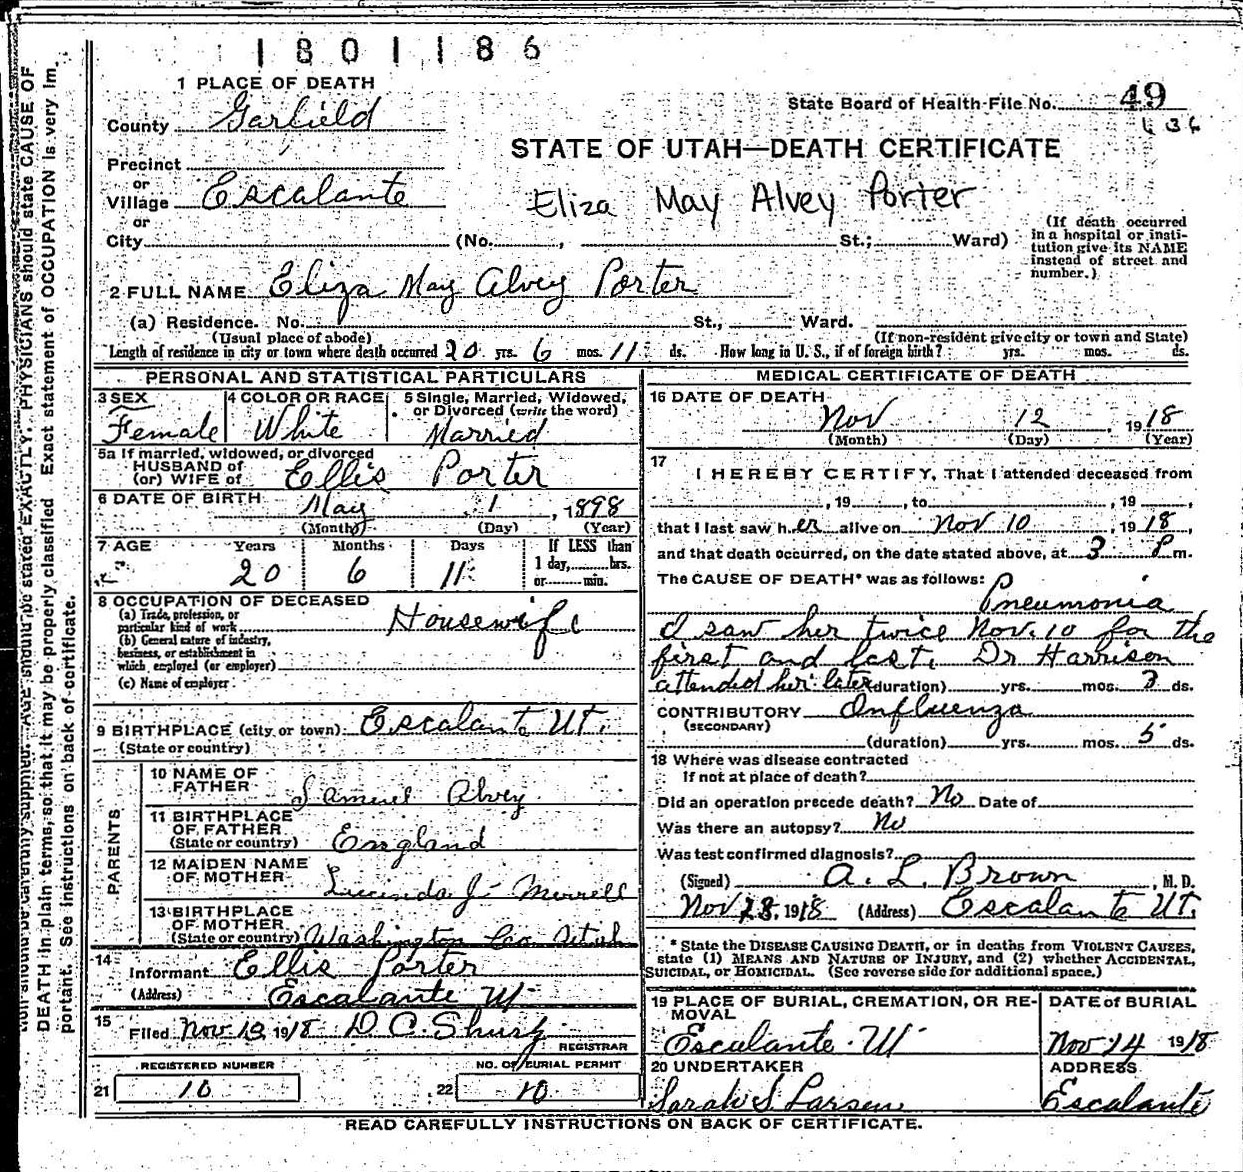 1801186
1 PLACE OF DEATH
State Board of Health-File No. 49
136
County Garfield
STATE OF UTAH—DEATH CERTIFICATE
Precinct
or
Village Escalante
Eliza May Alvey Porter
or
City (No. , St.; Ward)
(If death occurred in a hospital or insti-
tution give its NAME instead of street and number.)
2 FULL NAME Eliza May Alvey Porter
(a) Residence. No. St., Ward.
(Usual place of abode) (If non-resident give city or town and State)
Length of residence in city or town where death occurred 20 yrs. 6 mos. 11 ds. How long in U. S., if of foreign birth? yrs. mos. ds.
PERSONAL AND STATISTICAL PARTICULARS
3 SEX 4 COLOR OR RACE 5 Single, Married, Widowed,
or Divorced (write the word)
Female White Married
5a If married, widowed, or divorced
HUSBAND of
(or) WIFE of Ellis Porter
6 DATE OF BIRTH May 1, 1898
(Month) (Day) (Year)
7 AGE Years Months Days If LESS than
1 day, hrs.
20 6 11 or min.
8 OCCUPATION OF DECEASED
(a) Trade, profession, or
particular kind of work Housewife
(b) General nature of industry,
business, or establishment in
which employed (or employer)
(c) Name of employer
9 BIRTHPLACE (city or town) Escalante Ut.
(State or country)
PARENTS
10 NAME OF
FATHER Samuel Alvey
11 BIRTHPLACE
OF FATHER
(State or country) England
12 MAIDEN NAME
OF MOTHER Lucinda J. Merrell
13 BIRTHPLACE
OF MOTHER
(State or country) Washington Co. Utah
14 Informant Ellis Porter
(Address) Escalante Ut
15 Filed Nov 13 1918 D. C. Shurtz
REGISTRAR
REGISTERED NUMBER NO. OF BURIAL PERMIT
21 10 22 10
MEDICAL CERTIFICATE OF DEATH
16 DATE OF DEATH
Nov 12, 1918
(Month) (Day) (Year)
17 I HEREBY CERTIFY, That I attended deceased from
, 19 , to , 19 ,
that I last saw her alive on Nov 10, 1918,
and that death occurred, on the date stated above, at 3 P m.
The CAUSE OF DEATH* was as follows:
Pneumonia
I saw her twice Nov. 10 for the
first and last. Dr Harrison
attended her later (duration) yrs. mos. 3 ds.
CONTRIBUTORY Influenza
(SECONDARY)
(duration) yrs. mos. 5 ds.
18 Where was disease contracted
if not at place of death?
Did an operation precede death? No Date of
Was there an autopsy? No
Was test confirmed diagnosis?
(Signed) A. L. Brown, M. D.
Nov 28, 1918 (Address) Escalante Ut.
* State the DISEASE CAUSING DEATH, or in deaths from VIOLENT CAUSES,
state (1) MEANS AND NATURE OF INJURY, and (2) whether ACCIDENTAL,
SUICIDAL, or HOMICIDAL. (See reverse side for additional space.)
19 PLACE OF BURIAL, CREMATION, OR RE-
MOVAL
Escalante Ut
DATE of BURIAL
Nov 14 1918
20 UNDERTAKER
Sarah S Larsen
ADDRESS
Escalante
READ CAREFULLY INSTRUCTIONS ON BACK OF CERTIFICATE.
tion should be carefully supplied. AGE should be stated EXACTLY. PHYSICIANS should state CAUSE OF
DEATH in plain terms, so that it may be properly classified. Exact statement of OCCUPATION is very im-
portant. See instructions on back of certificate.